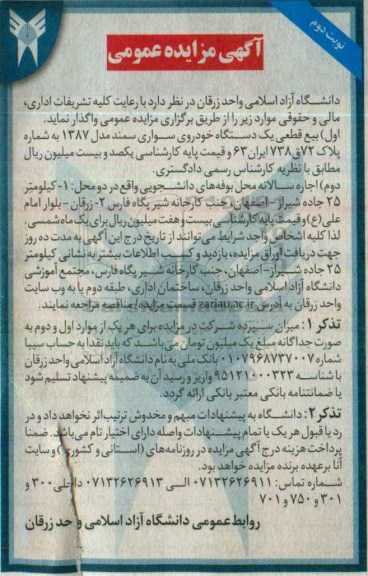 نوبت دوم
آگهی مزایده عمومی
دانشگاه آزاد اسلامی واحد زرقان در نظر دارد با رعایت کلیه تشریفات اداری،
مالی و حقوقی موارد زیر را از طریق برگزاری مزایده عمومی واگذار نماید.
اول) بیع قطعی یک دستگاه خودروی سواری سمند مدل ۱۳۸۷ به شماره
پلاک ۷۲ ق ۷۳۸ ایران ۶۳ و قیمت پایه کارشناسی یکصد و بیست میلیون ریال
مطابق با نظریه کارشناس رسمی دادگستری.
دوم) اجاره سالانه محل بوفه‌های دانشجویی واقع در دو محل: ۱- کیلومتر
۲۵ جاده شیراز - اصفهان، جنب کارخانه شیر پگاه فارس ۲- زرقان - بلوار امام
علی (ع) و قیمت پایه کارشناسی بیست و هفت میلیون ریال برای یک ماه شمسی.
لذا کلیه اشخاص واجد شرایط می‌توانند از تاریخ درج این آگهی به مدت ده روز
جهت دریافت اوراق مزایده، بازدید و کسب اطلاعات بیشتر به نشانی کیلومتر
۲۵ جاده شیراز - اصفهان، جنب کارخانه شیر پگاه فارس، مجتمع آموزشی
دانشگاه آزاد اسلامی واحد زرقان، ساختمان اداری، طبقه دوم یا به وب سایت
واحد زرقان به آدرس zariau.ac.ir قسمت مزایده/مناقصه مراجعه نمایند.
تذکر ۱: میزان سپرده شرکت در مزایده برای هر یک از موارد اول و دوم به
صورت جداگانه مبلغ یک میلیون تومان می‌باشد که باید نقدا به حساب سیبا
شماره ۰۱۰۷۹۶۸۷۳۷۰۰۷ بانک ملی به نام دانشگاه آزاد اسلامی واحد زرقان
با شناسه ۹۵۱۲۱۰۰۰۳۲۳ واریز و رسید آن به ضمیمه پیشنهاد تسلیم شود
یا ضمانتنامه بانکی معتبر بانکی ارائه گردد.
تذکر ۲: دانشگاه به پیشنهادات مبهم و مخدوش ترتیب اثر نخواهد داد و در
رد یا قبول هر یک یا تمام پیشنهادات واصله دارای اختیار تام می‌باشد. ضمنا
پرداخت هزینه درج آگهی مزایده در روزنامه‌های (استانی و کشوری) و سایت
آنا برعهده برنده مزایده خواهد بود.
شماره تماس: ۰۷۱۳۲۶۲۶۹۱۱ الی ۰۷۱۳۲۶۲۶۹۱۳ داخلی ۳۰۰ و
۳۰۱ و ۷۵۰ و ۷۰۱
روابط عمومی دانشگاه آزاد اسلامی واحد زرقان